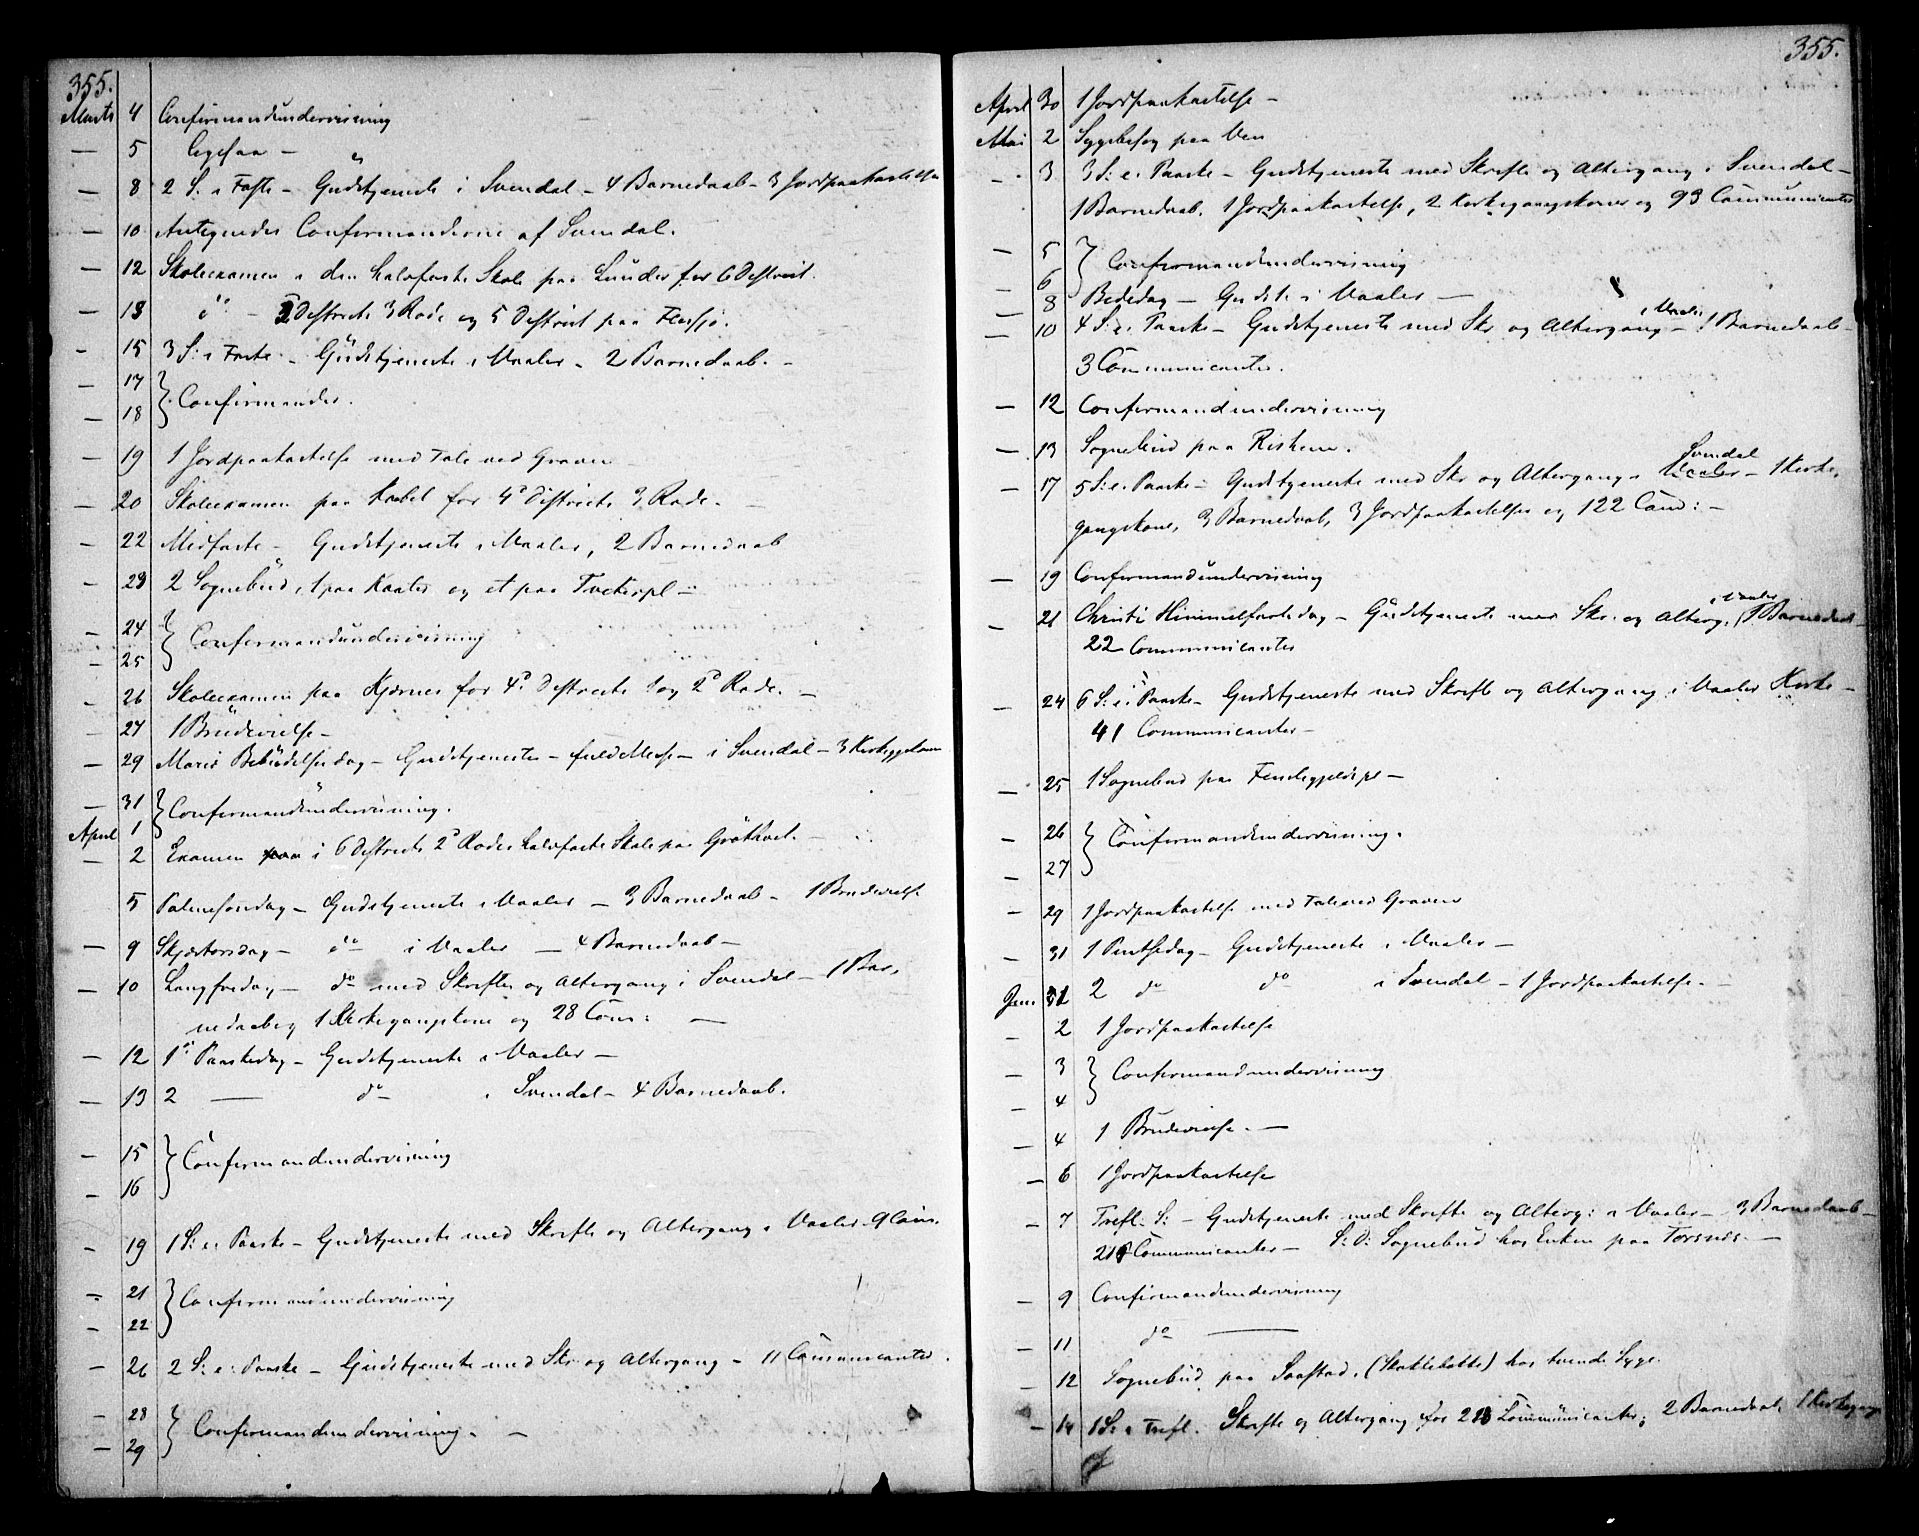 355.
Marts 4 Confirmandundervisning
— 5 Ligesaa —
— 8 2 S: i Faste – Gudstjeneste i Svendal – 4 Barnedaab – 3 Jordpaakastelse
— 10 Antegnedes Confirmanderne af Svendal.
— 12 Skoleexamen i den halvfaste Skole paa Lunder for 6 Distrikt.
— 13 do – 2 Distrikts 3 Rode og 5 Distrikt paa Flesjø.
— 15 3 S: i Faste – Gudstjeneste i Vaaler – 2 Barnedaab. –
— 17
— 18 } Confirmander.
— 19 1 Jordpaakastelse med Tale ved Graven
— 20 Skoleexamen paa Kabel for 4d Distrikts 3 Rode. –
— 22 Midfaste – Gudstjeneste i Vaaler, 2 Barnedaab
— 23 2 Sognebud, 1 paa Kaaler og et paa Tveterpl –
— 24
— 25 } Confirmandundervisning
— 26 Skoleexamen paa Kjærnes for 4d. Distrikts 1 og 2d Rode. –
— 27 1 Brudevielse –
— 29 Mariæ Bebudelsesdag – Gudstjeneste – fuld Messe – i Svendal – 3 Kirkeggskoner
— 31
April 1 } Confirmandundervisning.
— 2 Examen i 6 Distrikts 2d Rodes halvfaste Skole paa Gröthvet. –
5 Palmesøndag – Gudstjeneste i Vaaler – 3 Barnedaab – 1 Brudevielse
— 9 Skjærtorsdag – do i Vaaler – 4 Barnedaab –
— 10 Langfredag – do med Skrifte og Altergang i Svendal – 1 Bar,
nedaab og 1 Kirkegangskone og 28 Com: —
— 12 1ste Paaskedag – Gudstjeneste i Vaaler –
— 13 2 — do i Svendal – 4 Barnedaab.
— 15
— 16 } Confirmandundervisning
— 19 1 S: e. Paaske – Gudstjeneste med Skrifte og Altergang i Vaaler 9 Com.
— 21
— 22 } Confirmandundervisning
— 26 2 S: e: Paaske – Gudstjeneste med Skr og Altergang – 11 Communicanter.
— 28
— 29 } Confirmandundervisning. –
355.
April 30 1 Jordpaakastelse –
Mai 2 Sygebesøg paa Ven
— 3 3 S: e. Paaske – Gudstjeneste med Skrifte og Altergang i Svendal –
1 Barnedaab. 1 Jordpaakastelse, 2 Kirkegangskoner og 93 Communicanter
— 5
— 6 } Confirmandundervisning
8 Bededag – Gudst. i Vaaler —
— 10 4 S: e. Paaske – Gudstjeneste med Skr og Altergang i Vaaler – 1 Barnedaab –
3 Communicanter.
— 12 Confirmandundervisning
— 13 Sognebud paa Rishem.
— 17 5 S: e. Paaske – Gudstjeneste med Skr og Altergang i Vaaler Svendal – 1 Kirke,
gangskone, 3 Barnedaab, 3 Jordpaakastelser og 122 Com: –
— 19 Confirmandundervisning
— 21 Christi Himmelfartsdag – Gudstjeneste med Skr. og Alterg. i Vaaler, 1 Barnedaab –
22 Communicanter
— 24 6 S: e. Paaske – Gudstjeneste med Skrifte og Altergang i Vaaler Kirke –
41 Communicanter –
— 25 1 Sognebud paa
— 26
— 27 } Confirmandundervisning.
— 29 1 Jordpaakastelse med Tale ved Graven
— 31 1 Pintsedag – Gudstjeneste i Vaaler –
Juni 1 2 do do i Svendal – 1 Jordpaakastelse. –
— 2 1 Jordpaakastelse
— 3
— 4 } Confirmandundervisning
— 4 1 Brudevielse. –
— 6 1 Jordpaakastelse
— 7 Trefl. S: – Gudstjeneste med Skrifte og Alterg: i Vaaler – 3 Barnedaab –
21 Communicanter – S: D: Sognebud hos Enken paa Torsnes. –
— 9 Confirmandundervisning
— 11 do —
— 12 Sognebud paa Saastad. (Skakkebatte) hos tvende Syge.
— 14 1 S: e Trefl. Skrifte og Altergang for 28 Communicanter; 2 Barnedaab, 1 Kirkegangs